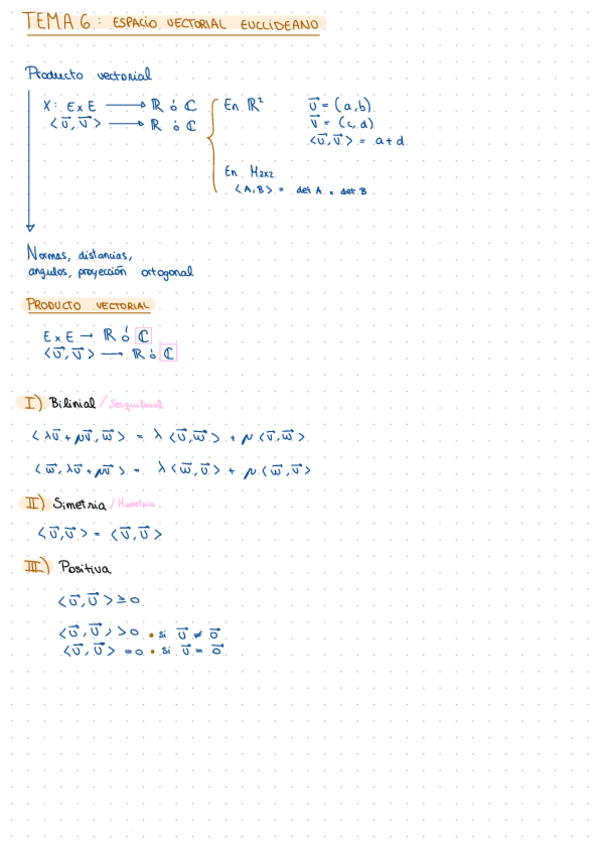 TEMA 6: ESPACIO VECTORIAL EUCLIDEANO
Producto vectorial
X: E x E → ℝ ó ℂ
<u⃗, v⃗> → ℝ ó ℂ
En ℝ²
u⃗ = (a,b)
v⃗ = (c,d)
<u⃗,v⃗> = a+d
En M2x2
<A,B> = det A x det B
Normas, distancias,
angulos, proyección ortogonal
PRODUCTO VECTORIAL
E x E → ℝ ó ℂ
<u⃗, v⃗> → ℝ ó ℂ
I) Bilinial / Sesquilinial
<λu⃗ + μv⃗, w⃗> = λ <u⃗,w⃗> + μ <v⃗,w⃗>
<w⃗, λu⃗ + μv⃗> = λ <w⃗,u⃗> + μ <w⃗,v⃗>
II) Simetria / Hermitica
<u⃗,v⃗> = <v⃗,u⃗>
III) Positiva
<u⃗,u⃗> ≥ 0
<u⃗,u⃗> > 0 • si u⃗ ≠ 0⃗
<u⃗,u⃗> = 0 • si u⃗ = 0⃗